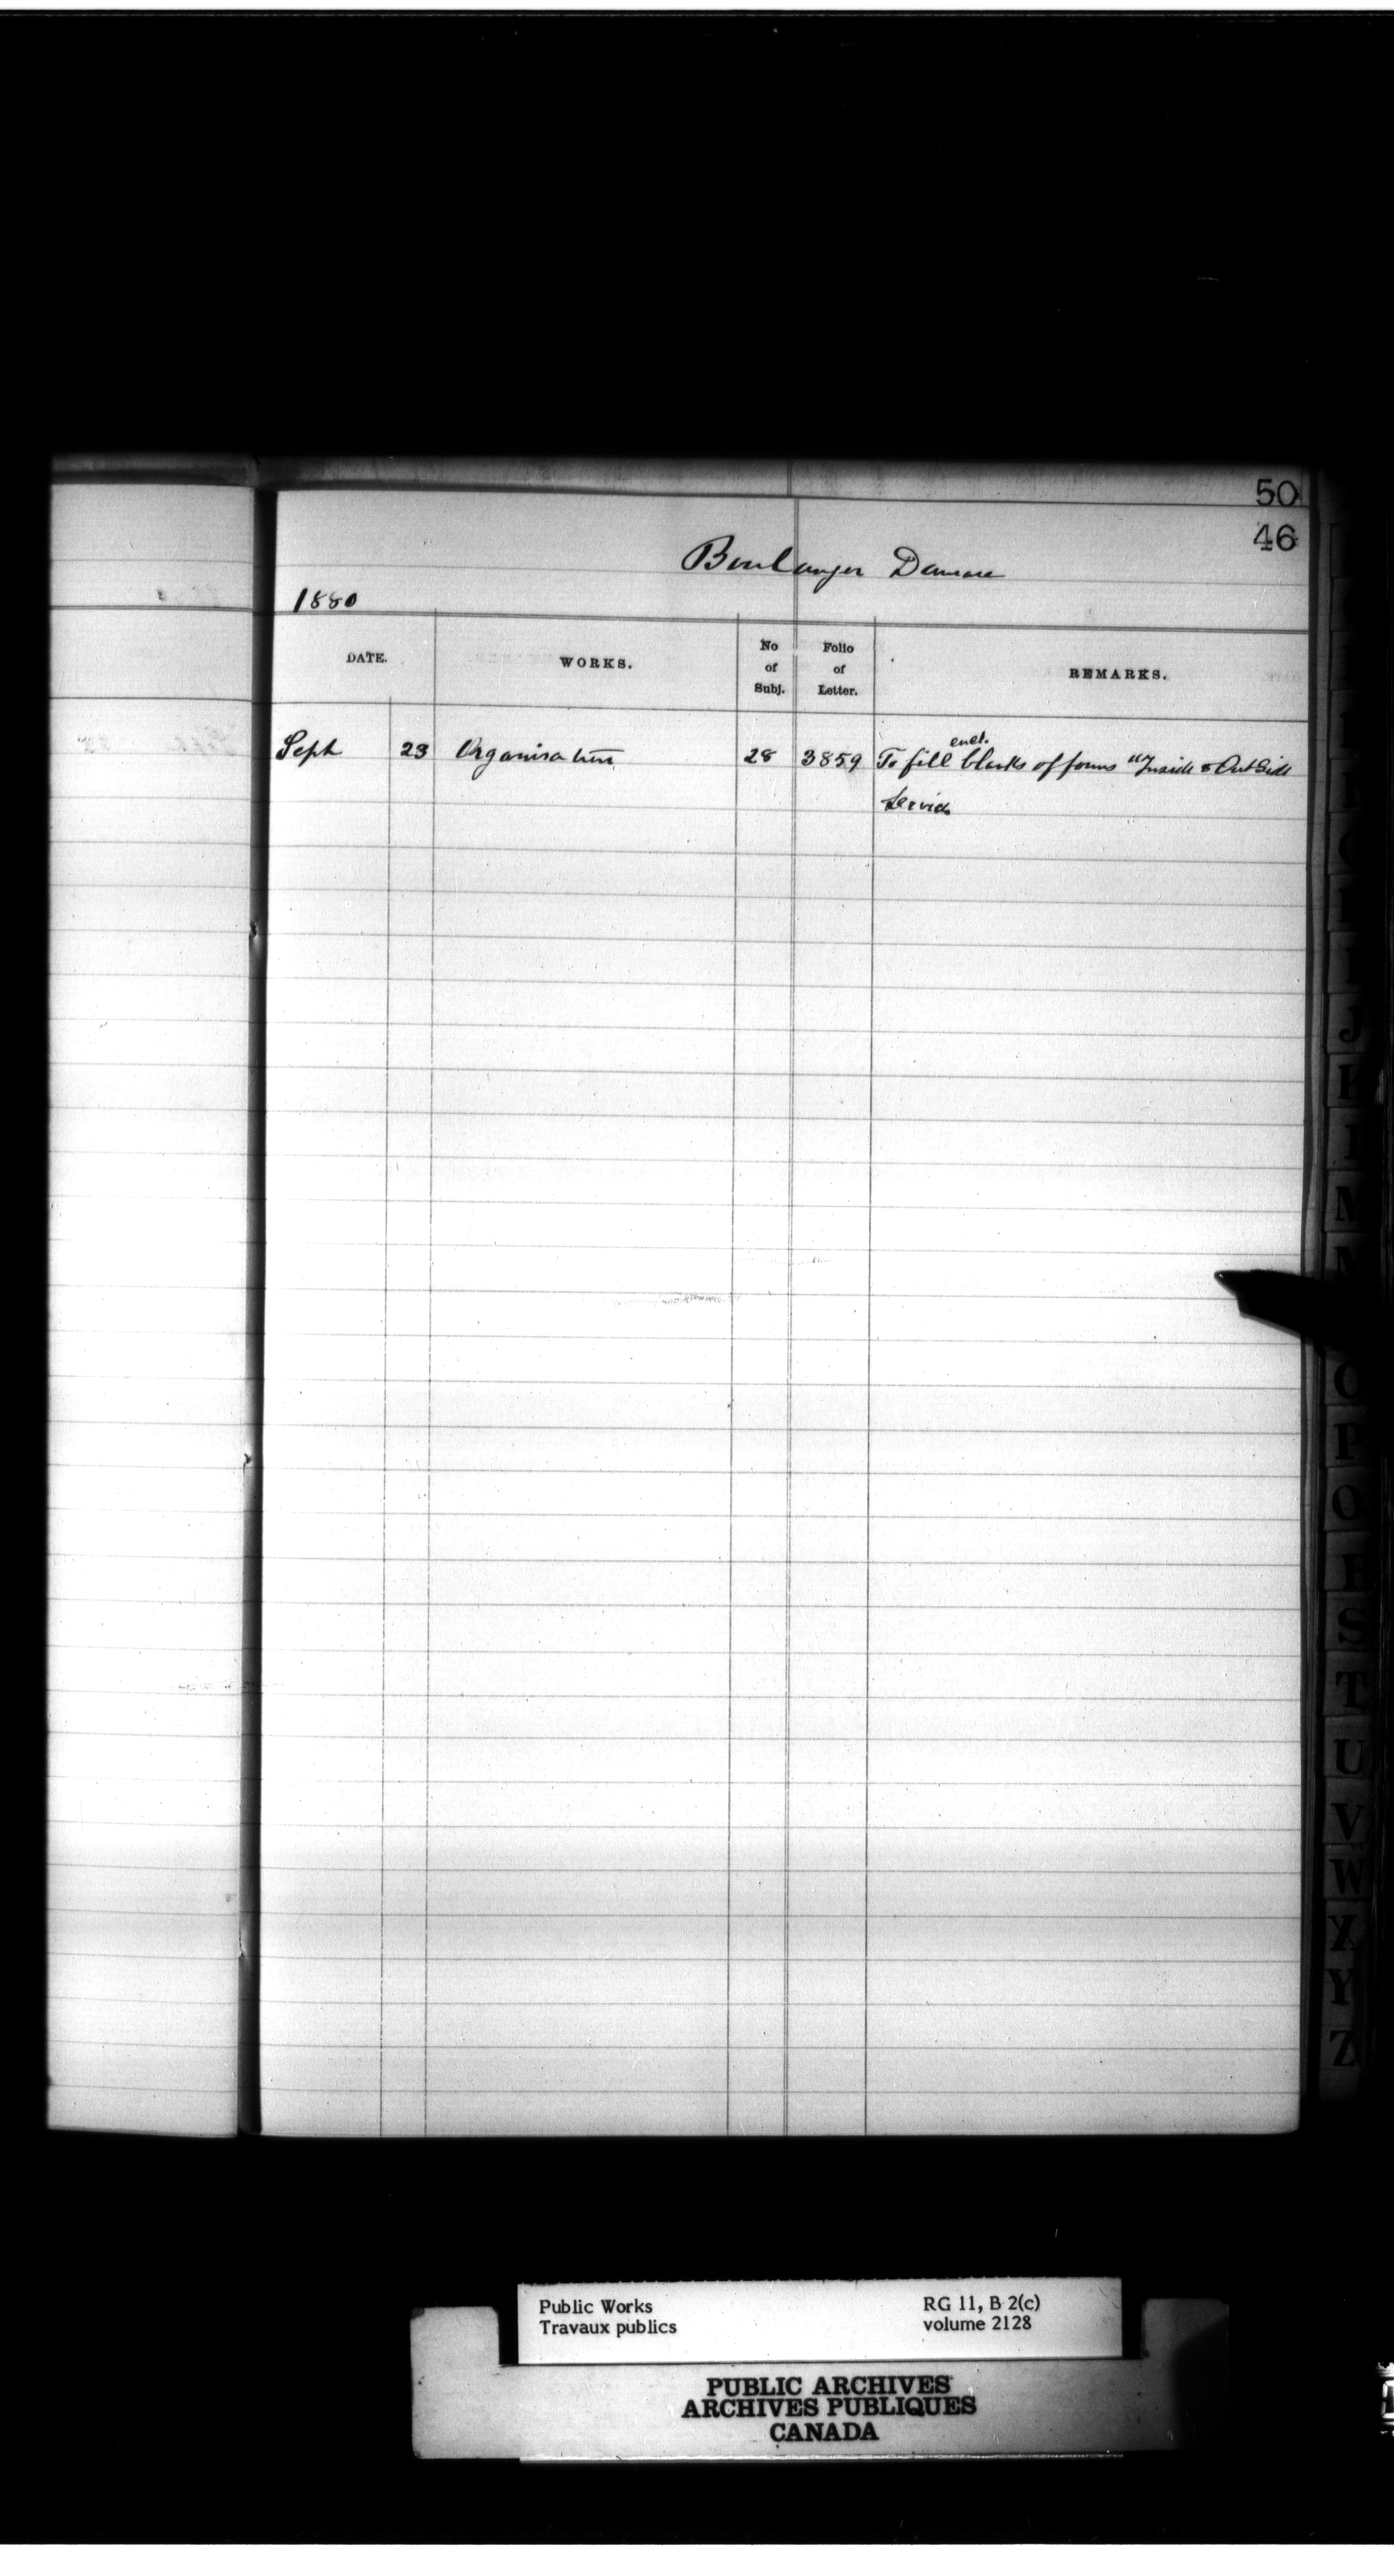 50
46
Boulanger Damase
1880
DATE. WORKS. No of Subj. Folio of Letter. REMARKS.
Sept 23 Organisation 28 3859 To fill encl. blanks of forms "Inside & Outside
Service
J
K
N
O
P
Q
R
S
T
U
V
W
X
Y
Z
Public Works RG 11, B 2(c)
Travaux publics volume 2128
PUBLIC ARCHIVES
ARCHIVES PUBLIQUES
CANADA